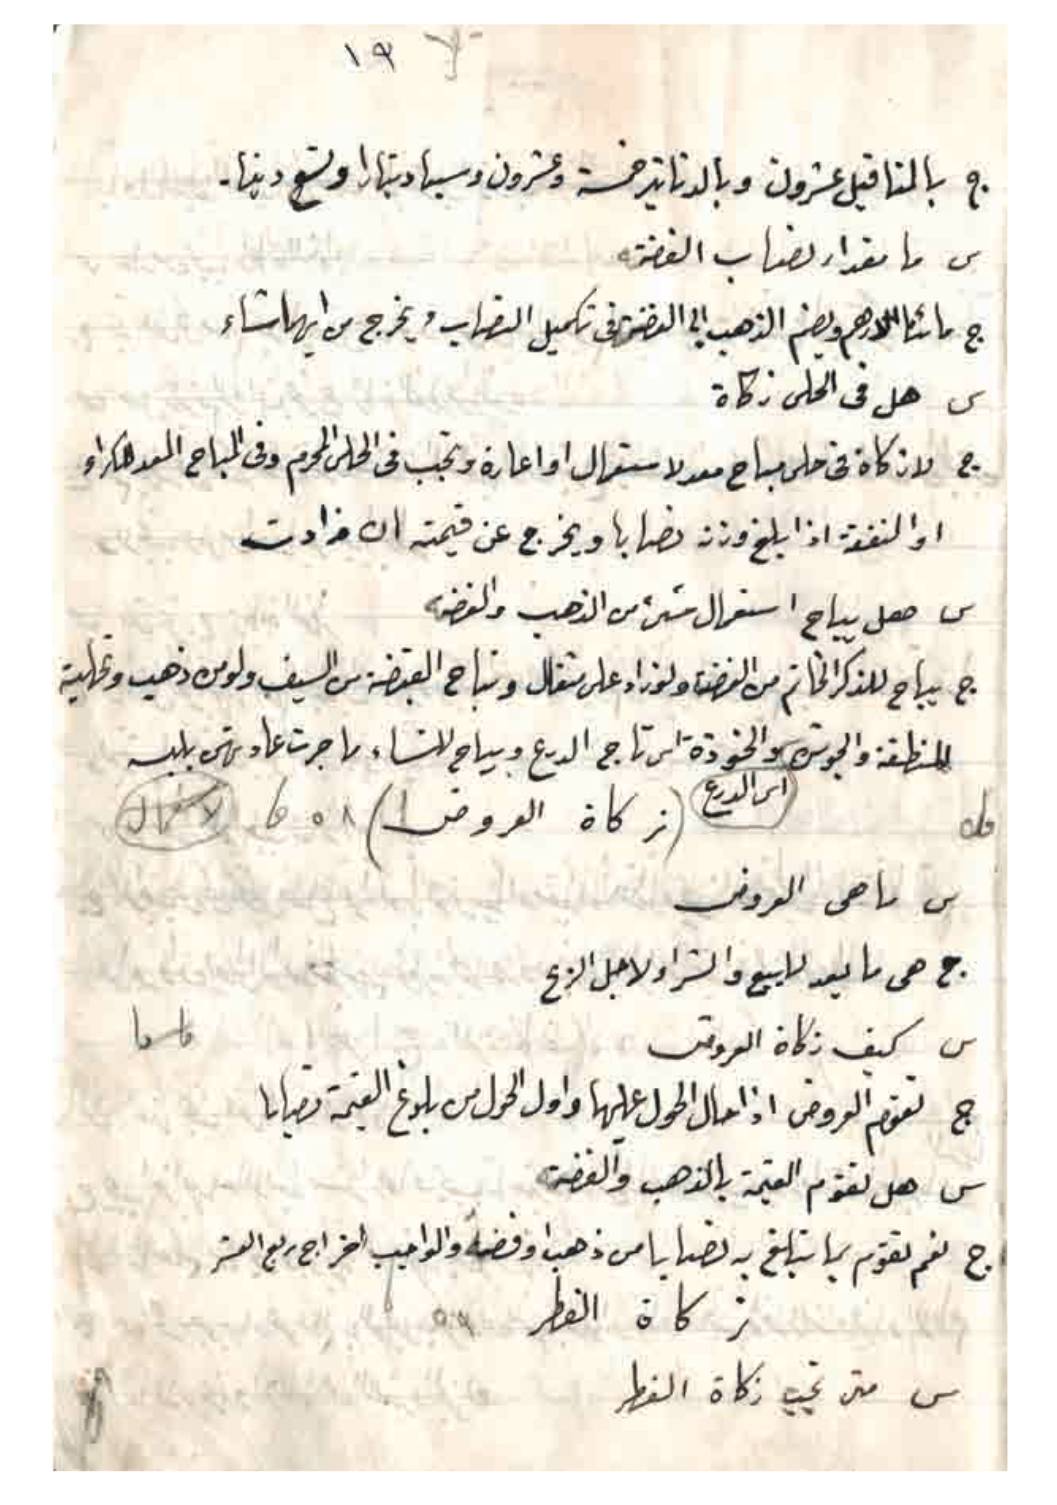 ١٩
ج بالمثاقيل عشرون وبالدنانير خمسة وعشرون وسبعا دينارا وتسع دينار.
س ما مقدار نصاب الفضة
ج مائتا درهم ويضم الذهب الى الفضة فى تكميل النصاب ويخرج من ايهما شاء
س هل فى الحلى زكاة
ج لا زكاة فى حلى مباح معد لاستعمال او اعارة وتجب فى الحلى المحرم وفى المباح المعد للكراء
او النفقة اذا بلغ وزنه نصابا ويخرج عن قيمته ان زادت
س هل يباح استعمال شئ من الذهب والفضة
ج يباح للذكر الخاتم من الفضة ولو زاد على مثقال وتباح القبضة من السيف ولو من ذهب وتحلية
المنطقة والجوشن والخوذة اى تاج الدرع ويباح للنساء ما جرت عادتهن بلبسه
اى الدرع
(زكاة العروض)
س ما هى العروض
ج هى ما يعد للبيع والشراء لاجل الربح
س كيف زكاة العروض
ج تقوم العروض اذا حال الحول عليها واول الحول من بلوغ القيمة نصابا
س هل تقوم القيمة بالذهب والفضة
ج نعم تقوم بما تبلغ به نصابا من ذهب او فضة والواجب اخراج ربع العشر
زكاة الفطر
س متى تجب زكاة الفطر